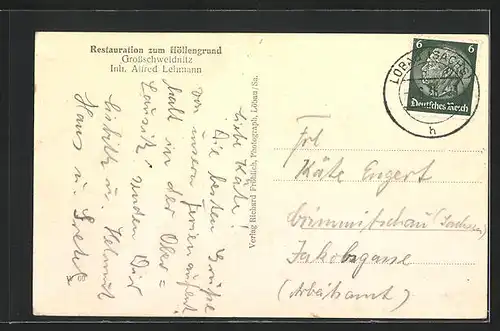 Restauration zum Höllengrund
Großschweidnitz
Inh. Alfred Lehmann
Liebe Käte!
Die besten Grüße
von unsern Ferienaufent-
halt in der Ober=
Lausitz, senden Dir
Helmut
Hans u. Gretel
Verlag Richard Fröhlich, Photograph, Löbau/Sa.
LÖBAU (SACHS)
h
6 6
Deutsches Reich
Frl
Käte Engert
Crimmitschau (Sachsen)
Jakobsgasse
(Arbeitsamt)